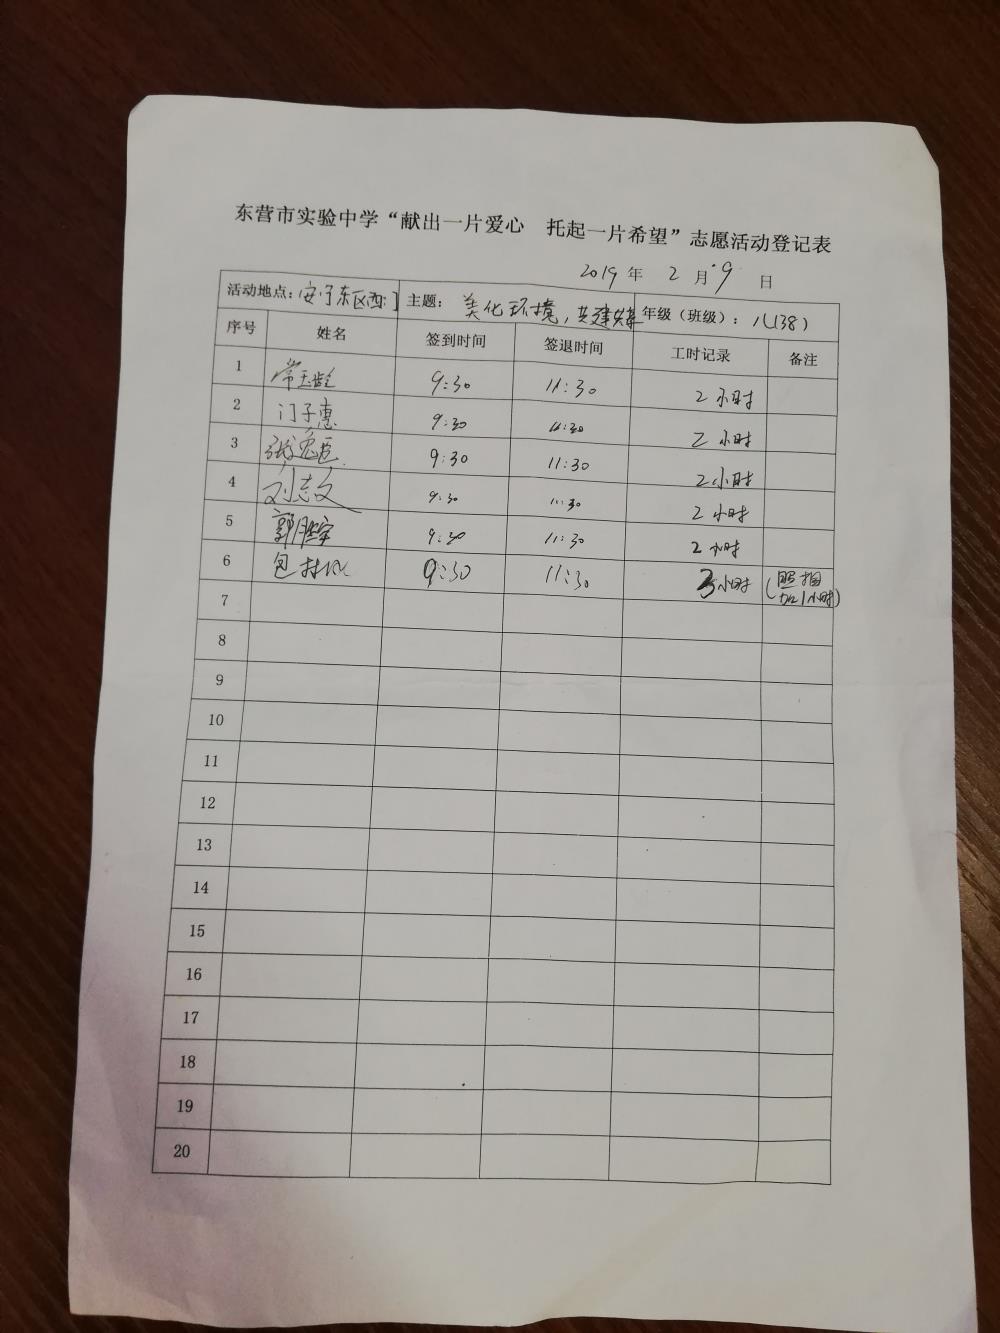 东营市实验中学“献出一片爱心 托起一片希望”志愿活动登记表
2019 年 2 月 9 日
活动地点：安宁东区西门 主题： 美化环境，共建 年级（班级）：八(38)
序号 姓名 签到时间 签退时间 工时记录 备注
1 常玉龄 9:30 11:30 2小时
2 门子惠 9:30 11:30 2小时
3 张 9:30 11:30 2小时
4 刘志文 9:30 11:30 2小时
5 郭胜宇 9:30 11:30 2小时
6 包 9:30 11:30 3小时 (照相加1小时)
7
8
9
10
11
12
13
14
15
16
17
18
19
20